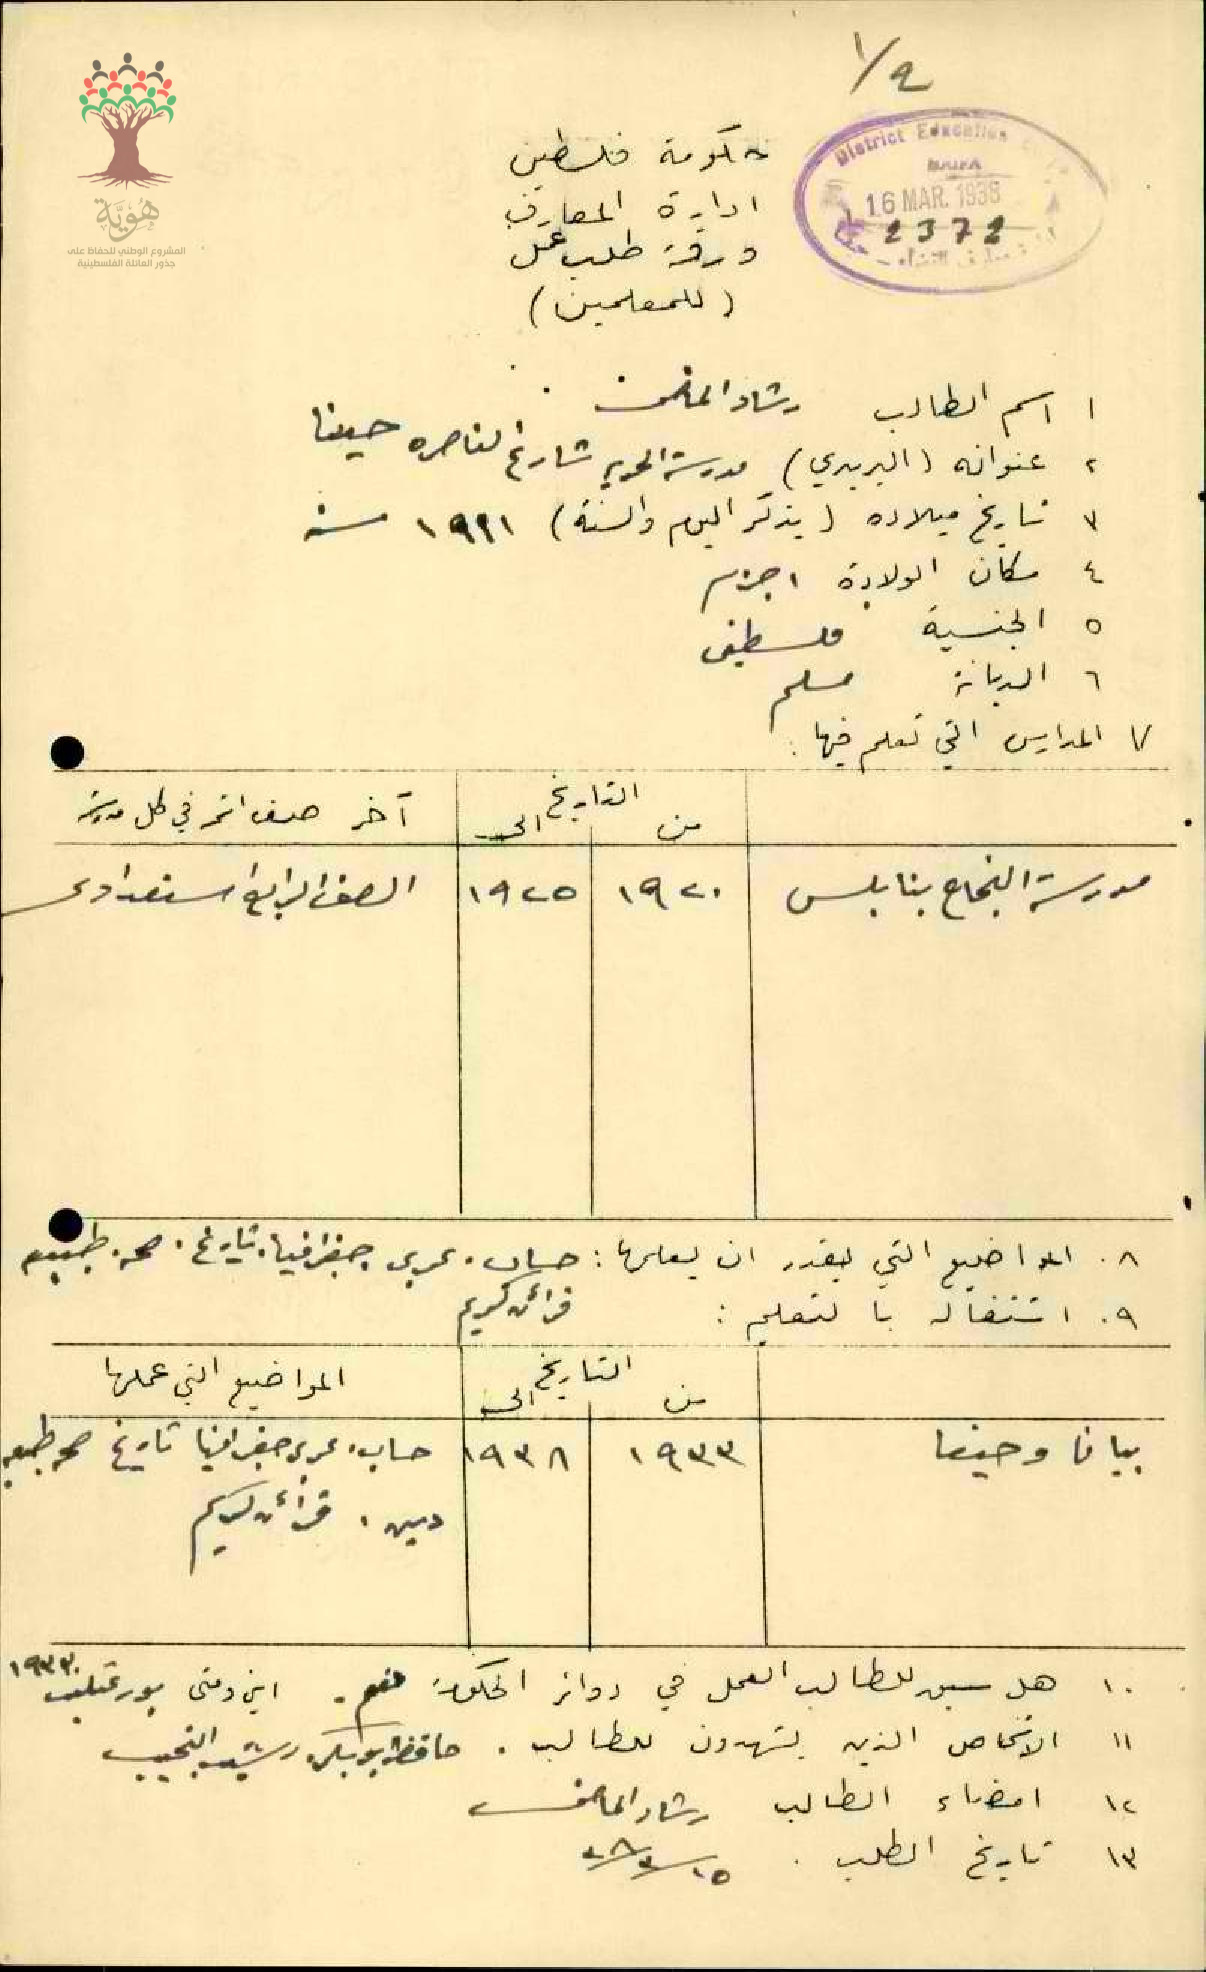 ١/٢
هُوِيَّة
المشروع الوطني للحفاظ على
جذور العائلة الفلسطينية
District Education
HAIFA
16 MAR. 1938
2372
حكومة فلسطين
ادارة المعارف
ورقة طلب عمل
(للمعلمين)
١ اسم الطالب رشاد الماضي
٢ عنوانه (البريدي) مدرسة شارع الناصره حيفا
٣ تاريخ ميلاده (يذكر اليوم والسنة) سنة
٤ مكان الولادة اجزم
٥ الجنسية فلسطيني
٦ الديانة مسلم
٧ المدارس التي تعلم فيها:
التاريخ
من الى آخر صف اتمه في كل مدرسة
مدرسة النجاح بنابلس ١٩٢٠ ١٩٢٥ الصف الرابع استعدادي
٨. المواضيع التي يقدر ان يعلمها: حساب. عربي. جغرافيا. تاريخ. صحة. طبيعه
قرآن كريم
٩. اشتغاله بالتعليم:
التاريخ
من الى المواضيع التي علمها
وحيفا ١٩٣٣ ١٩٣٨ حساب. عربي جغرافيا تاريخ صحه طبيعه
دين. قرآن كريم
١٠. هل سبق للطالب العمل في دوائر الحكومة نعم. اين ومتى ١٩٣٣
١١ الاشخاص الذين يشهدون للطالب.
١٢ امضاء الطالب رشاد الماضي
١٣ تاريخ الطلب. ١٥/٣/٣٨